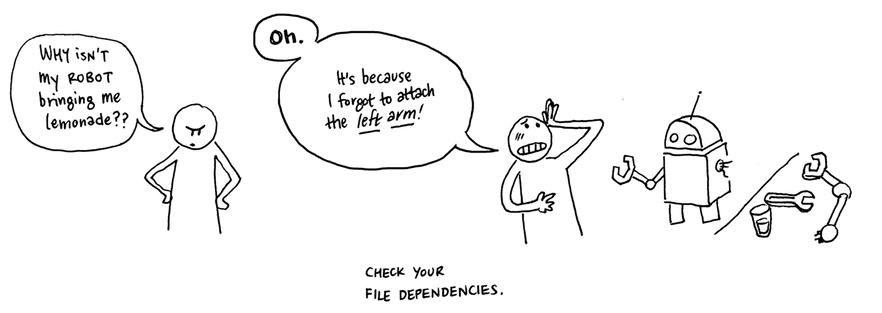 WHY ISN'T
MY ROBOT
bringing me
lemonade??
Oh.
It's because
I forgot to attach
the left arm!
CHECK YOUR
FILE DEPENDENCIES.